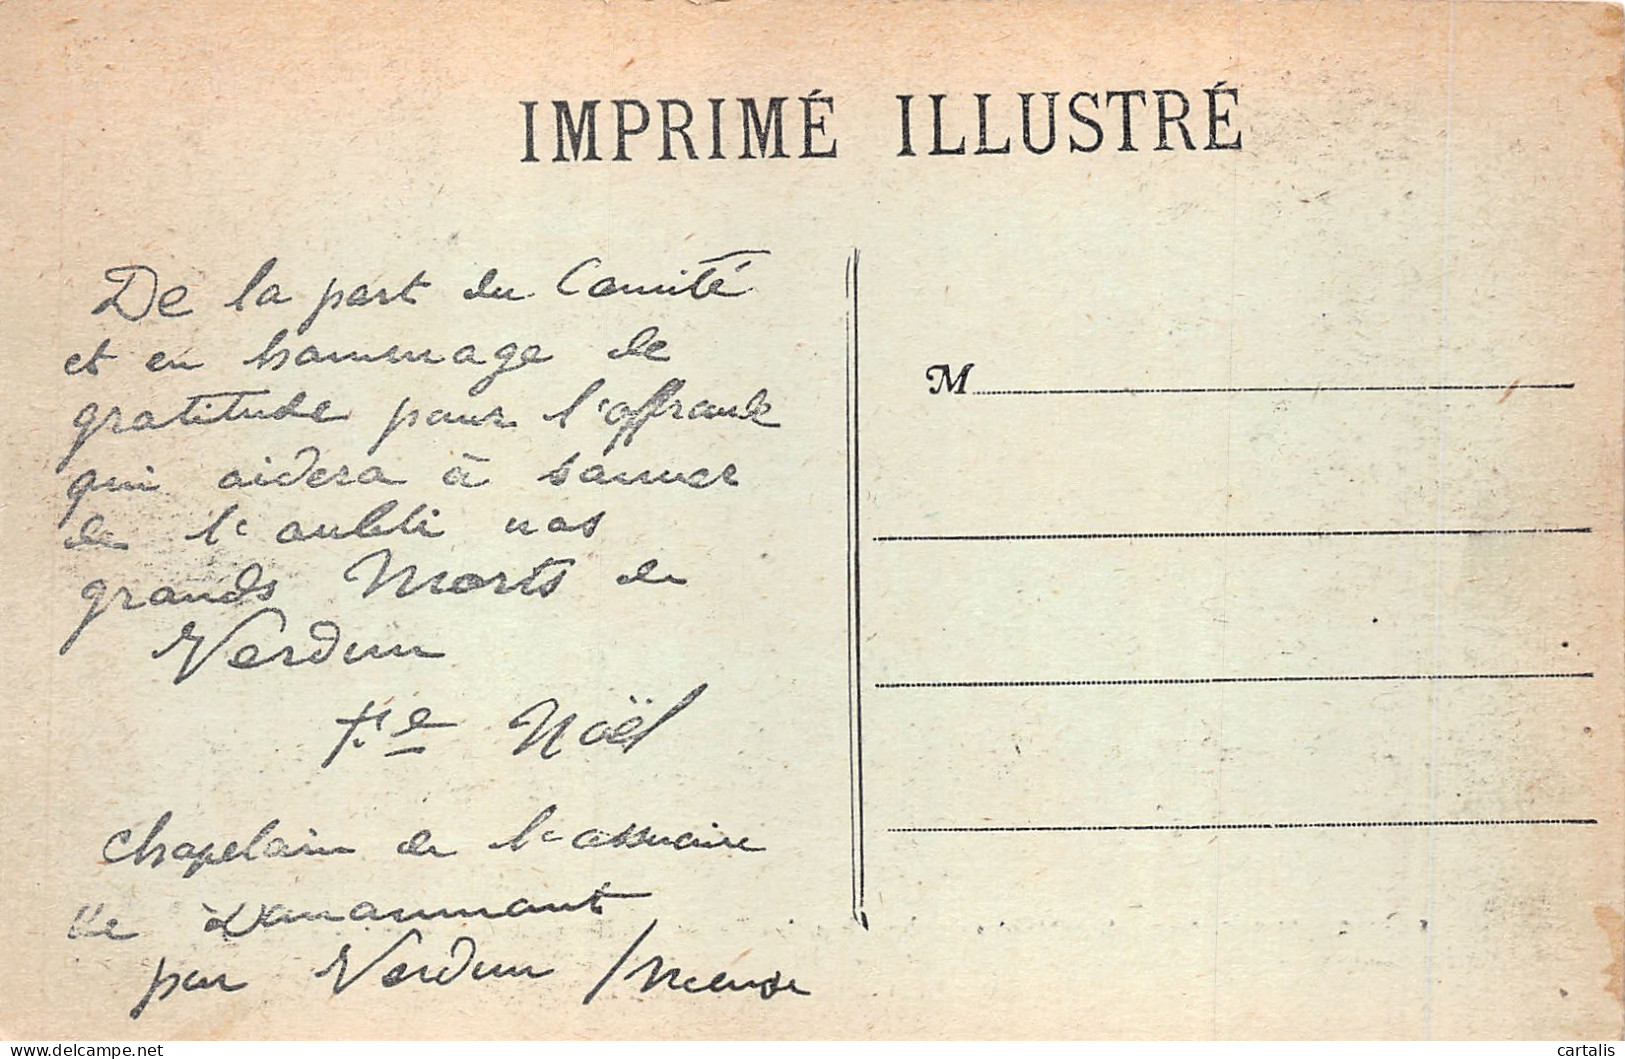 IMPRIMÉ ILLUSTRÉ
De la part du Comité
et en hommage de
gratitude pour l'offrande
qui aidera à sauver
de l'oubli nos
grands Morts de
Verdun
Noël
chapelain de l'ossuaire
de Douaumont
par Verdun / Meuse
M
Ma-Shops
cartalis
delcampe.net